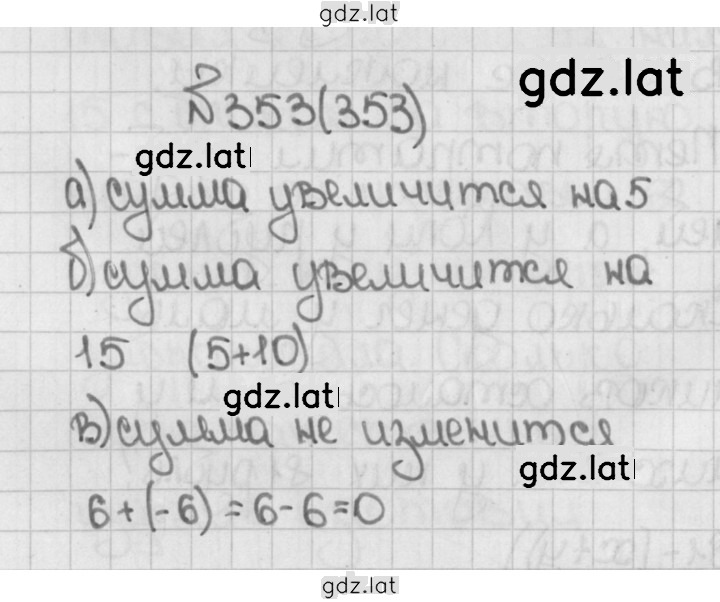 gdz.lat
gdz.lat
№353(353)
gdz.lat
а) сумма увеличится на 5
б) сумма увеличится на
15 (5+10)
gdz.lat
в) сумма не изменится
gdz.lat
6+(-6)=6-6=0
gdz.lat